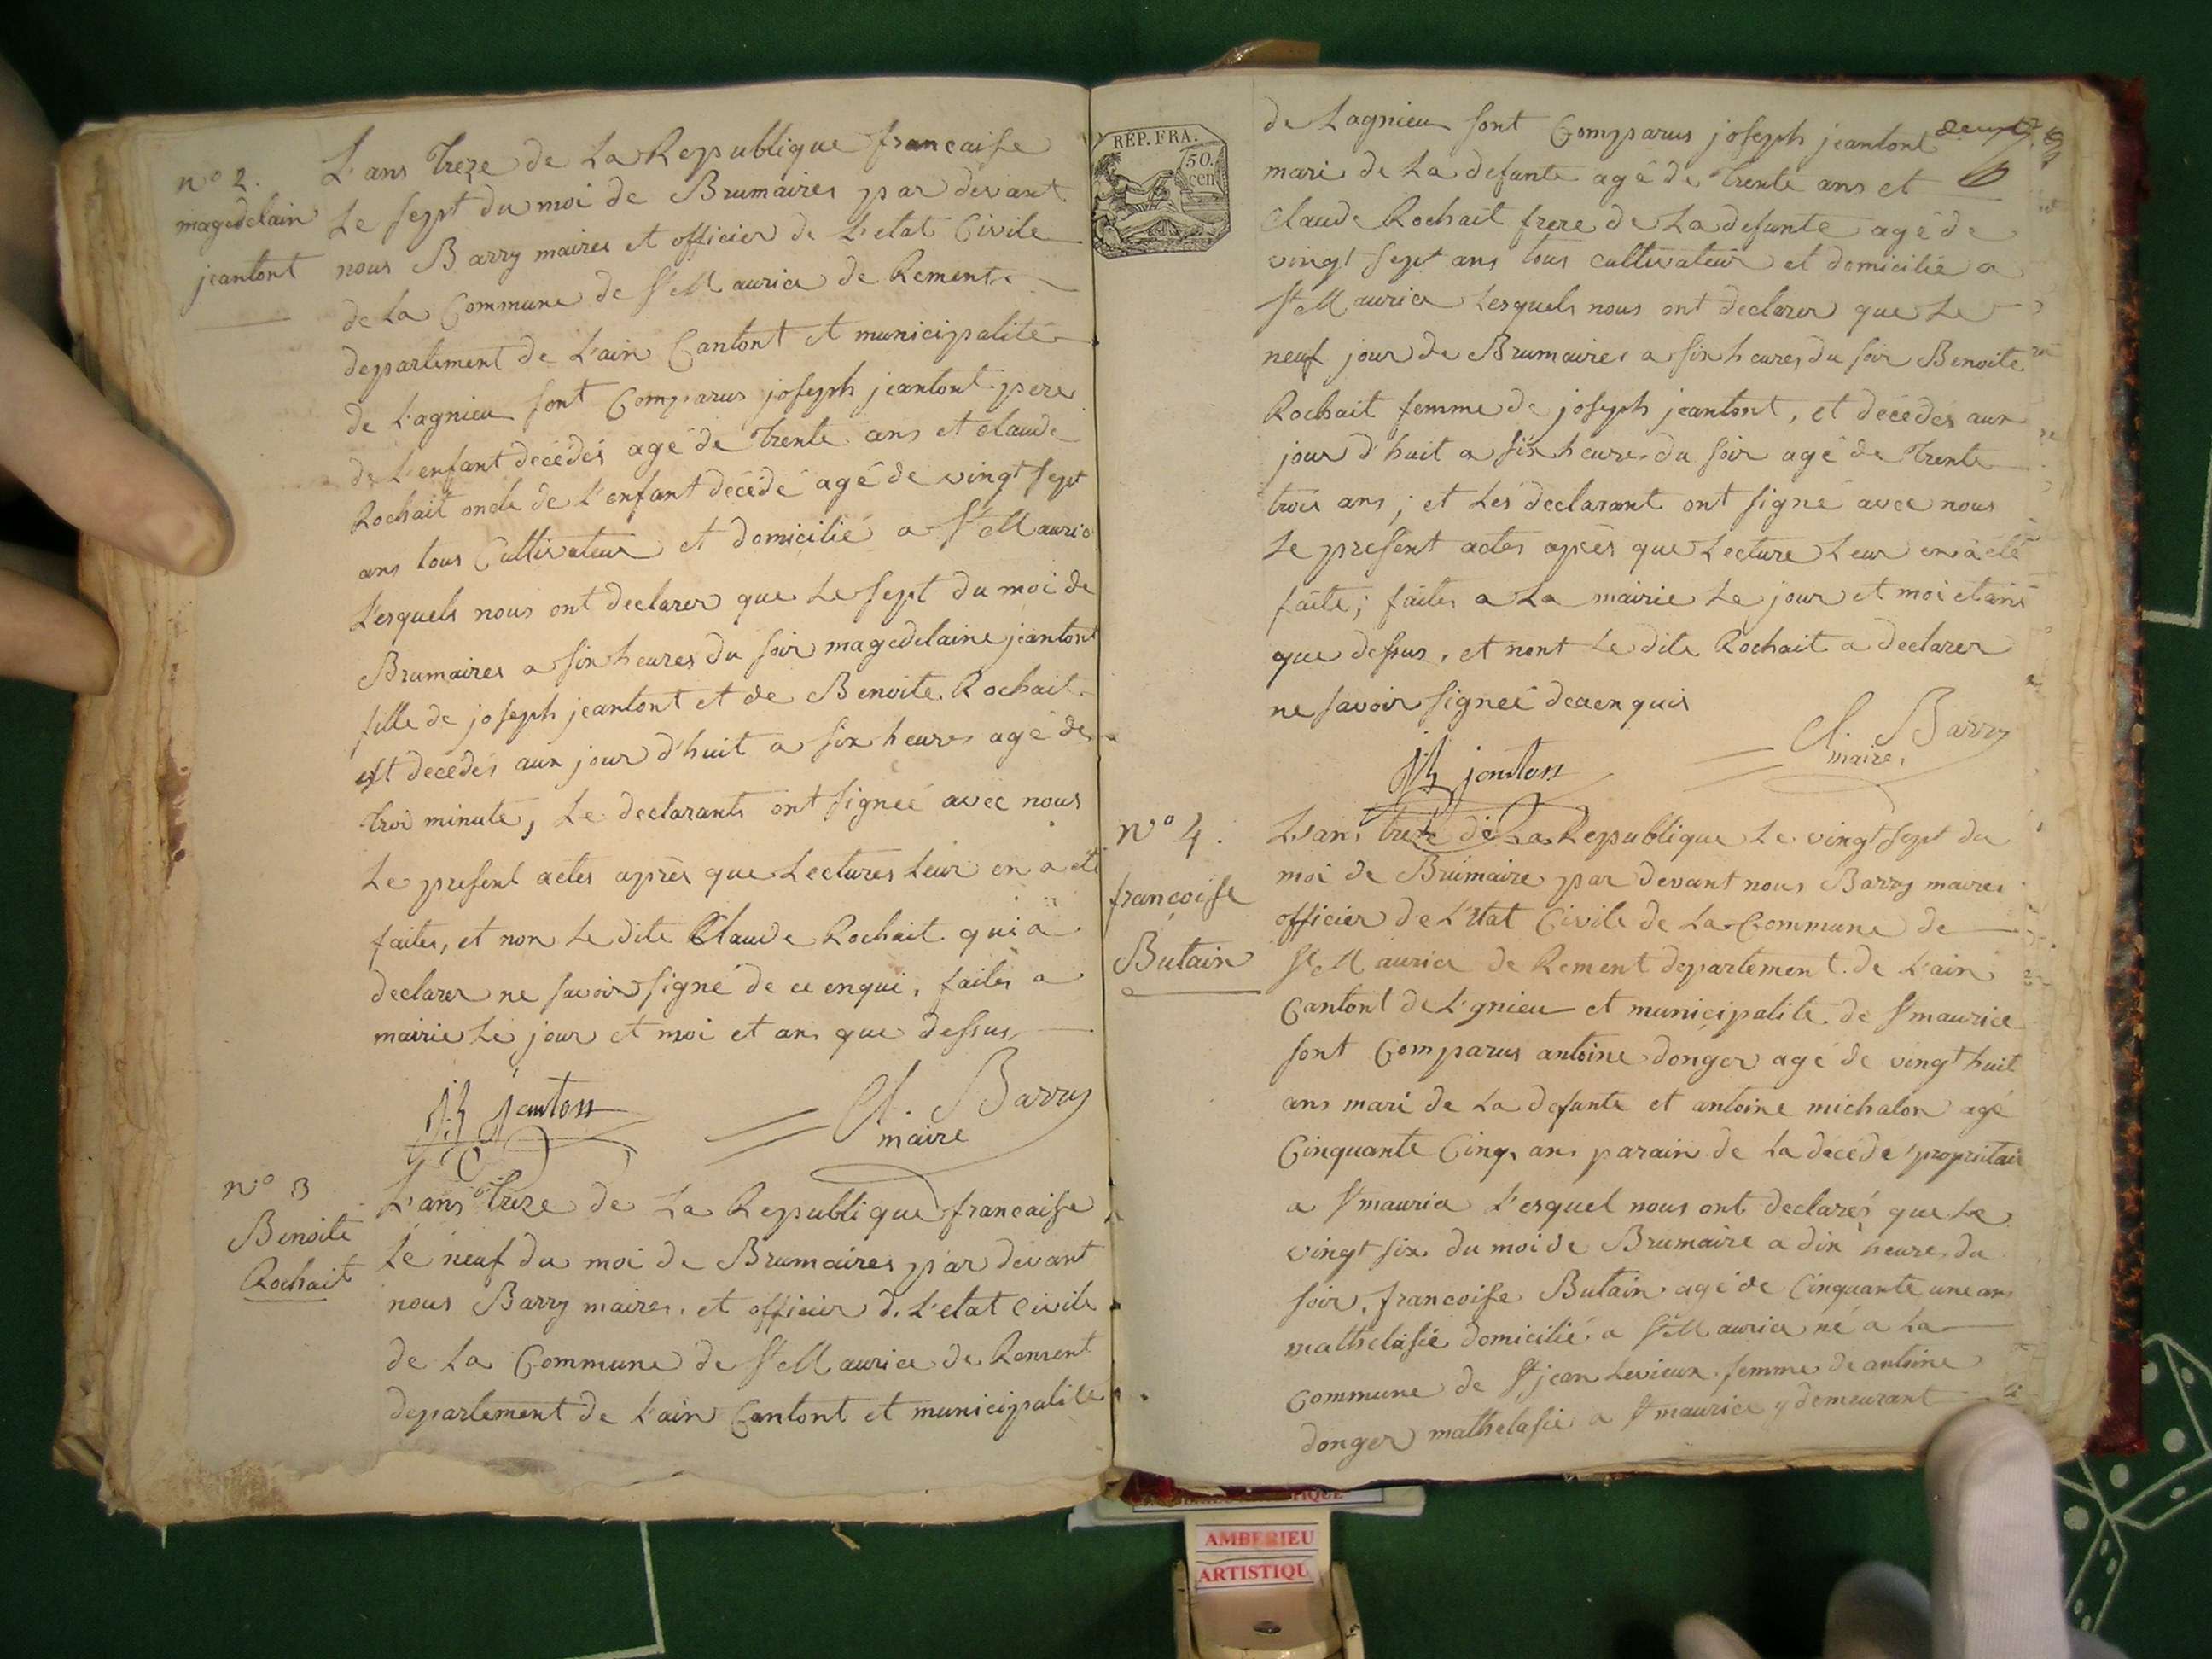 n° 2.
magedelain
jeantont
L'ans treze de La Republique francaise
Le sept du moi de Brumaires par devant
nous Barry maires et officier de L'etat Civile
de La Commune de St Maurice de Rement
departement de L'ain Cantont et municipalité
de L'agnieu sont Comparus joseph jeantont pere
de L'enfant décédés agé de trente ans et claude
Rochait oncle de l'enfant décédé agé de vingt sept
ans tous Cultivateur et domicilié a St Maurice
Lesquels nous ont declarer que Le sept du moi de
Brumaires a six heures du soir magedelaine jeantont
fille de joseph jeantont et de Benoite Rochait
est decedés aux jour d'huit a six heures agé de
troi minute, Le declarants ont signeé avec nous
Le present actes après que Lectures Leur en a eté
faites, et non Le dite Claude Rochait qui a
declarer ne savoir signé de ce enqui, faites a
mairie Le jour et moi et ans que dessus,
jh janton
Cl. Barry
maire
n° 3
Benoite
Rochait
L'ans treze de La Republique francaise
Le neuf du moi de Brumaires par devant
nous Barry maires et officier de L'etat civile
de La Commune de St Maurice de Rement
departement de L'ain Cantont et municipalité
REP. FRA.
50.
cen
deux
de Lagnieu sont Comparus joseph jeantont
mari de La defunte agé de trente ans et
Claude Rochait frere de La defunte agé de
vingt sept ans tous cultivateur et domicilié a
St Maurice Lesquels nous ont declarer que Le
neuf jour de Brumaires a six heures du soir Benoite
Rochait femme de joseph jeantont, et décédés aux
jour d'huit a six heures du soir agé de trente
trois ans; et Les declarant ont signé avec nous
Le present actes après que Lecture Leur en a eté
faite; faites a La mairie Le jour et moi et ans
que dessus, et nont Le dite Rochait a declarer
ne savoir signeé deaenquis
jh janton
Cl. Barry
maire
n° 4.
françoise
Butain
L'ans treze de La Republique Le vingt sept du
moi de Brumaire par devant nous Barry maires
officier de L'etat Civile de La Commune de
St Maurice de Rement departement de L'ain
Cantont de L'gnieu et municipalite de St maurice
sont Comparus antoine donger agé de vingt huit
ans mari de La defunte et antoine michalon agé
Cinquante Cinq ans parain de La décédé propriétair
a St maurice L'esquel nous ont declarés que Le
vingt six du moi de Brumaire a dix heure du
soir, francoise Butain agé de Cinquante une ans
mathelasié domicilié a St Maurice né a La
Commune de St jean Levieux femme de antoine
donger mathelasié a St maurice y demeurant
AMBERIEU
ARTISTIQU